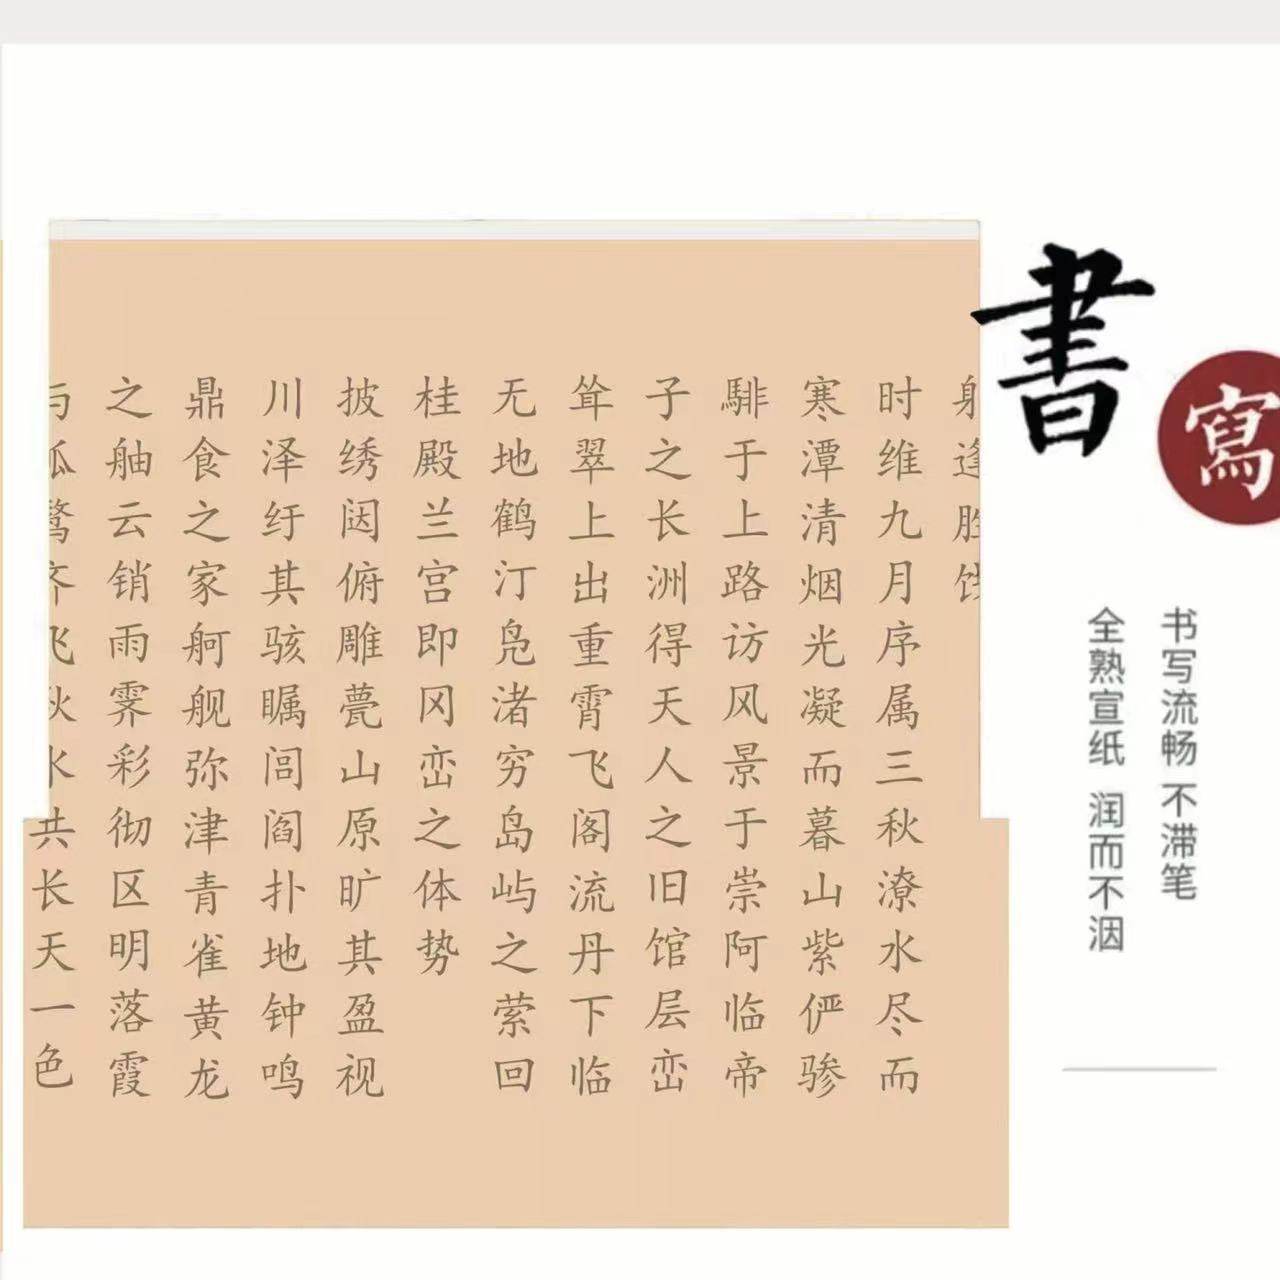 書寫
书写流畅 不滞笔
全熟宣纸 润而不洇
逢胜
时维九月序属三秋潦水尽而
寒潭清烟光凝而暮山紫俨骖
騑于上路访风景于崇阿临帝
子之长洲得天人之旧馆层峦
耸翠上出重霄飞阁流丹下临
无地鹤汀凫渚穷岛屿之萦回
桂殿兰宫即冈峦之体势
披绣闼俯雕甍山原旷其盈视
川泽纡其骇瞩闾阎扑地钟鸣
鼎食之家舸舰弥津青雀黄龙
之舳云销雨霁彩彻区明落霞
与孤鹜齐飞秋水共长天一色